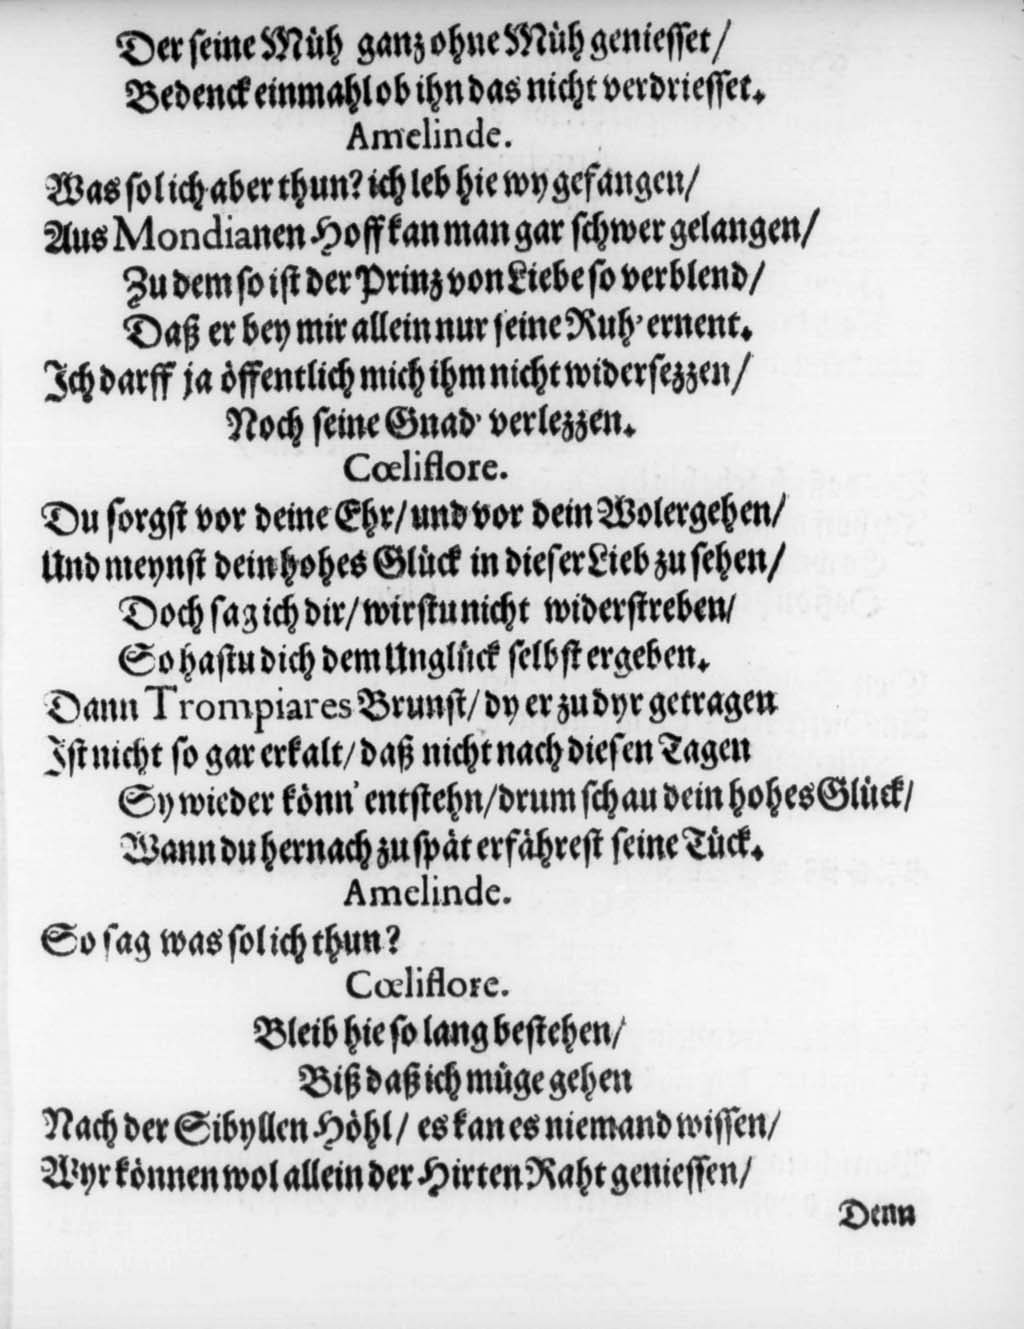 Der ſeine Müh ganz ohne Müh genieſſet/
Bedenck einmahl ob ihn das nicht verdrieſſet.
Amelinde.
Was ſol ich aber thun? ich leb hie wy gefangen/
Aus Mondianen Hoff kan man gar ſchwer gelangen/
Zu dem ſo iſt der Prinz von Liebe ſo verblend/
Daß er bey mir allein nur ſeine Ruh' ernent.
Ich darff ja öffentlich mich ihm nicht widerſezzen/
Noch ſeine Gnad' verlezzen.
Cœliflore.
Du ſorgſt vor deine Ehr/ und vor dein Wolergehen/
Und meynſt dein hohes Glück in dieſer Lieb zu ſehen/
Doch ſag ich dir/ wirſtu nicht widerſtreben/
So haſtu dich dem Unglück ſelbſt ergeben.
Dann Trompiares Brunſt/ dy er zu dyr getragen
Iſt nicht ſo gar erkalt/ daß nicht nach dieſen Tagen
Sy wieder könn' entſtehn/ drum ſchau dein hohes Glück/
Wann du hernach zu ſpät erfähreſt ſeine Tück.
Amelinde.
So ſag was ſol ich thun?
Cœliflore.
Bleib hie ſo lang beſtehen/
Biß daß ich müge gehen
Nach der Sibyllen Höhl/ es kan es niemand wiſſen/
Wyr können wol allein der Hirten Raht genieſſen/
Denn